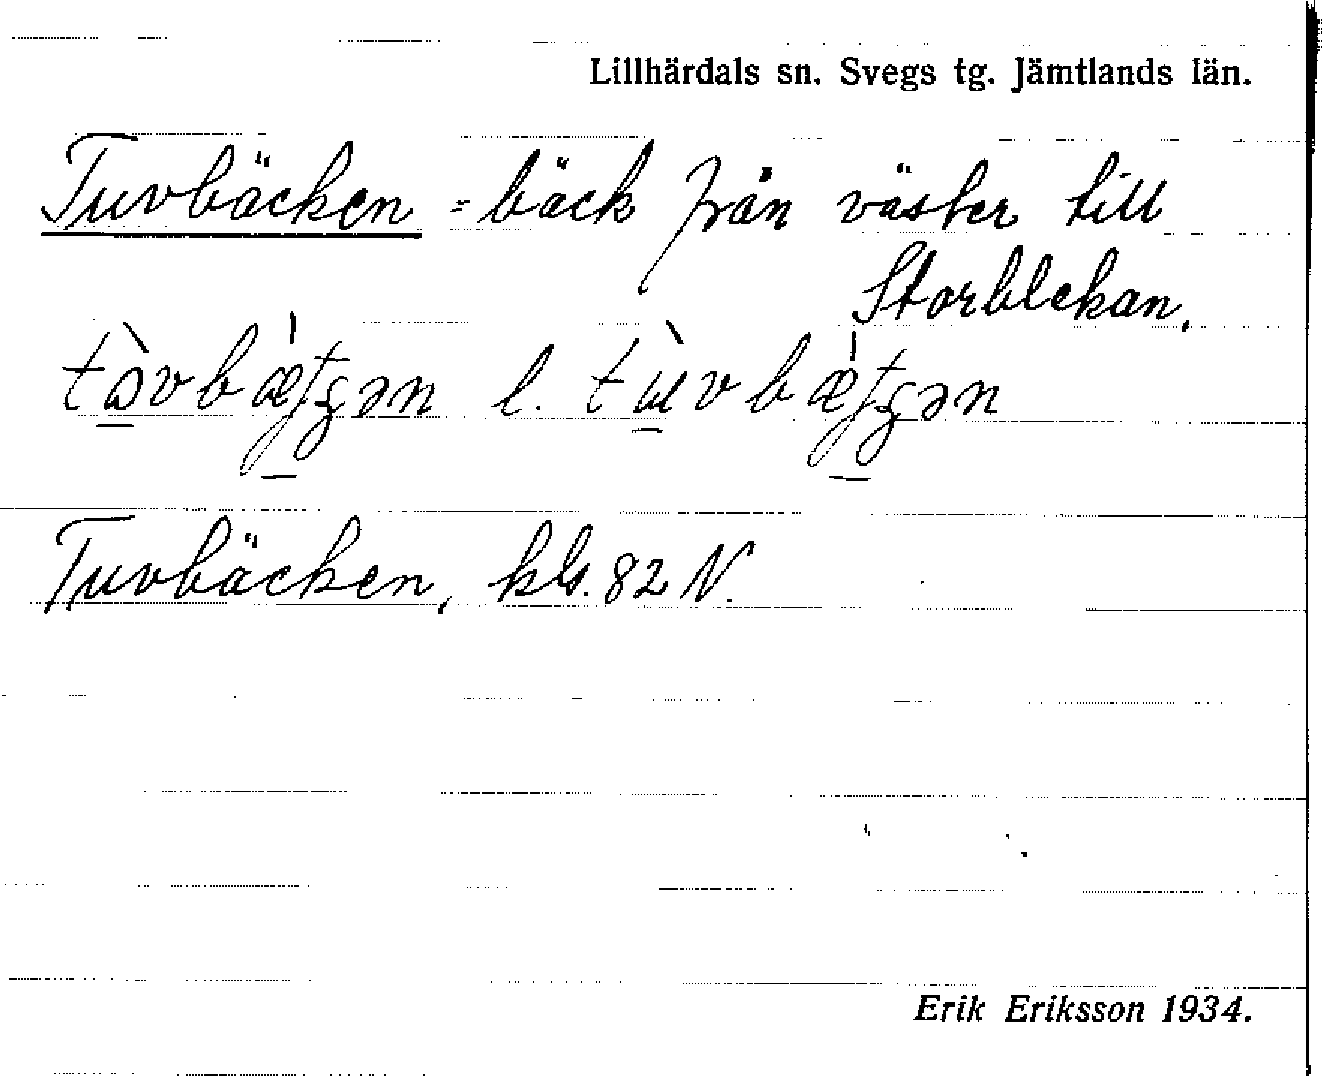 Lillhärdals sn. Svegs tg. Jämtlands län.
Tuvbäcken = bäck från väster till
Storblekan.
l.
Tuvbäcken, kbl. 82 N.
Erik Eriksson 1934.